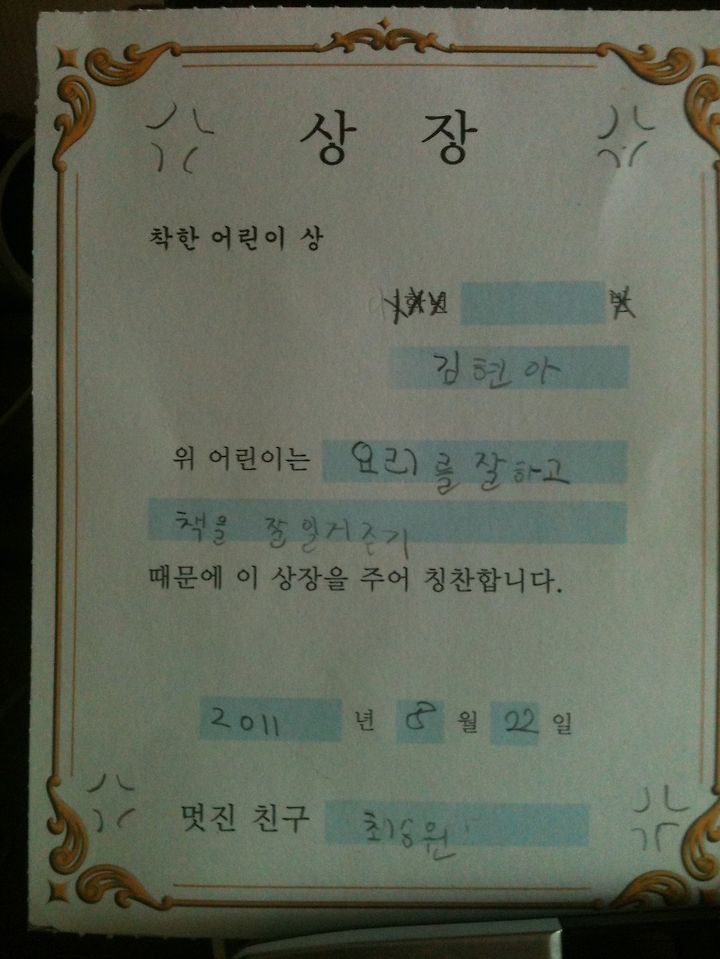 상 장
착한 어린이 상
학년 반
김현아
위 어린이는 요리를 잘하고
책을 잘 일거주기
때문에 이 상장을 주어 칭찬합니다.
2011 년 8 월 22 일
멋진 친구